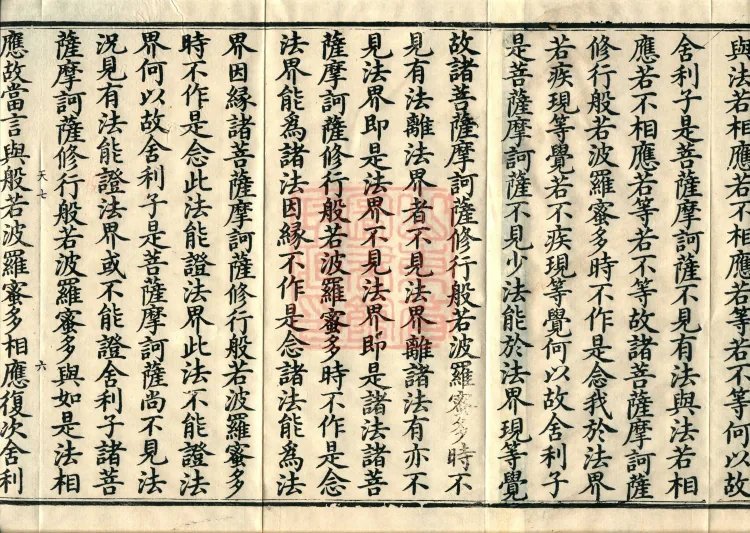 與法若相應若不相應若等若不等何以故
舍利子是菩薩摩訶薩不見有法與法若相
應若不相應若等若不等故諸菩薩摩訶薩
修行般若波羅蜜多時不作是念我於法界
若疾現等覺若不疾現等覺何以故舍利子
是菩薩摩訶薩不見少法能於法界現等覺
故諸菩薩摩訶薩修行般若波羅蜜多時不
見有法離法界者不見法界離諸法有亦不
見法界即是法界不見法界即是諸法諸菩
薩摩訶薩修行般若波羅蜜多時不作是念
法界能為諸法因緣不作是念諸法能為法
界因緣諸菩薩摩訶薩修行般若波羅蜜多
時不作是念此法能證法界此法不能證法
界何以故舍利子是菩薩摩訶薩尚不見法
況見有法能證法界或不能證舍利子諸菩
薩摩訶薩修行般若波羅蜜多與如是法相
天七 六
應故當言與般若波羅蜜多相應復次舍利